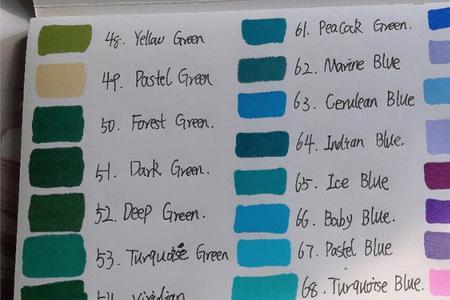 48. Yellow Green
49. Pastel Green
50. Forest Green.
51. Dark Green.
52. Deep Green.
53. Turquoise Green
54. Viridian
61. Peacock Green.
62. Marine Blue
63. Cerulean Blue
64. Indian Blue.
65. Ice Blue
66. Baby Blue.
67. Pastel Blue
68. Turquoise Blue.